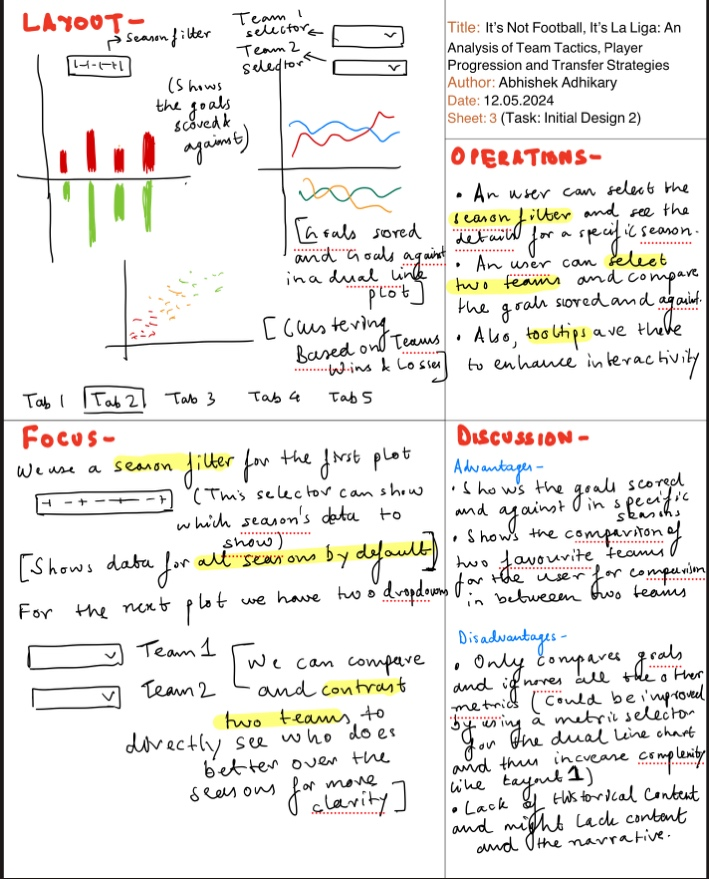 LAYOUT-
season filter
Team 1
selector
Team 2
selector
(Shows
the goals
scored &
against)
[Goals sored
and Goals against
in a dual line
plot]
[Clustering
Based on Teams
Wins & Losses]
Tab 1 Tab 2 Tab 3 Tab 4 Tab 5
Title: It's Not Football, It's La Liga: An
Analysis of Team Tactics, Player
Progression and Transfer Strategies
Author: Abhishek Adhikary
Date: 12.05.2024
Sheet: 3 (Task: Initial Design 2)
OPERATIONS-
• An user can select the
season filter and see the
details for a specific season.
• An user can select
two teams and compare
the goals scored and against.
• Also, tooltips are there
to enhance interactivity
FOCUS-
We use a season filter for the first plot
(This selector can show
which season's data to
show)
[Shows data for all seasons by default]
For the next plot we have two dropdowns
Team 1
Team 2
[We can compare
and contrast
two teams to
directly see who does
better over the
seasons for more
clarity]
DISCUSSION-
Advantages-
• Shows the goals scored
and against in specific
seasons
• Shows the comparison of
two favourite teams
for the user for comparison
in betweeen two teams
Disadvantages-
• Only compares goals
and ignores all the other
metrics (Could be improved
by using a metric selector
for the dual line chart
and thus increase complexity
like Layout 1)
• Lack of Historical Content
and might Lack content
and the narrative.